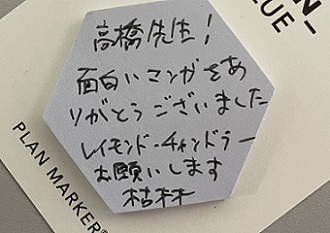 高橋先生!
面白いマンガをあ
りがとうございました
レイモンド・チャンドラー
お願いします
PLAN MARKER®
N-
LUE